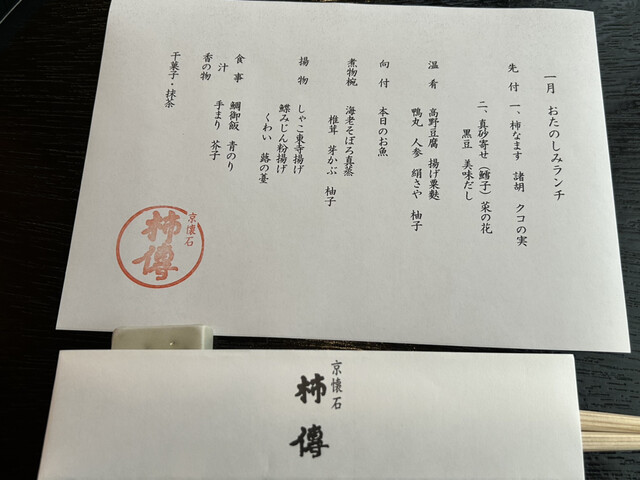 一月 おたのしみランチ
先付 一、柿なます 諸胡 クコの実
二、真砂寄せ(鱈子)菜の花
黒豆 美味だし
温肴 高野豆腐 揚げ粟麩
鴨丸 人参 絹さや 柚子
向付 本日のお魚
煮物椀 海老そぼろ真蒸
椎茸 芽かぶ 柚子
揚物 しゃこ東寺揚げ
鰈みじん粉揚げ
くわい 蕗の薹
食事 鯛御飯 青のり
汁 手まり 芥子
香の物
干菓子・抹茶
京懐石
柿傳
京懐石
柿傳